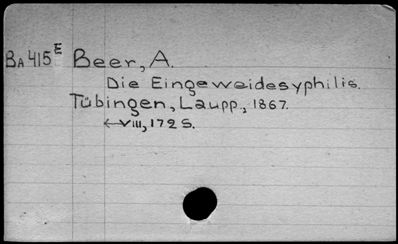 BA 415 E Beer, A.
Die Eingeweidesyphilis.
Tübingen, Laupp., 1867.
VIII, 172 S.